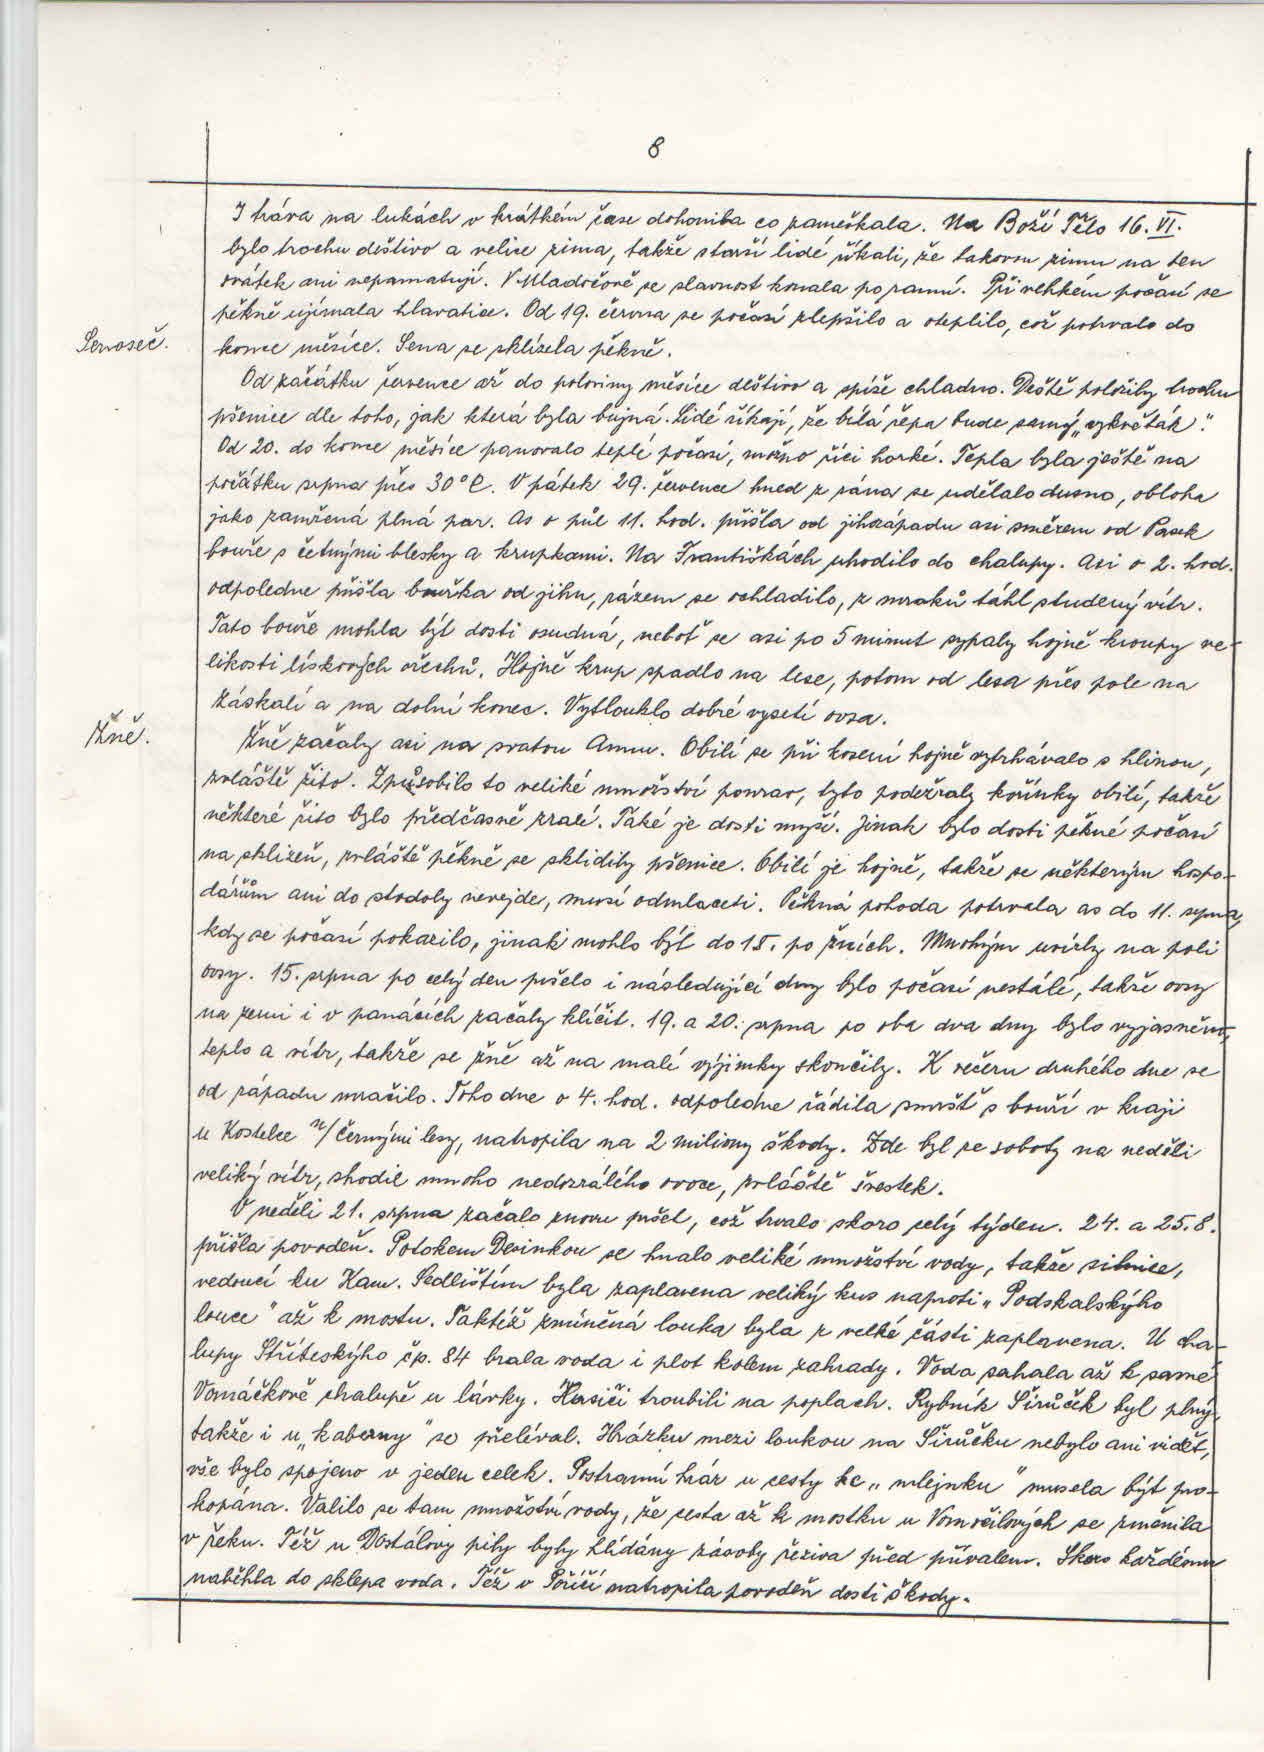 8
I tráva na lukách v krátkém čase dohonila co zameškala. Na Boží Tělo 16. VI.
bylo trochu deštivo a velice zima, takže starší lidé říkali, že takovou zimu na ten
svátek ani nepamatují. V Mladočově se slavnost konala po ranní. Při vlhkém počasí se
pěkně ujímala hlavatice. Od 19. června se počasí zlepšilo a oteplilo, což potrvalo do
Senoseč.
konce měsíce. Sena se sklízela pěkně.
Od začátku července až do poloviny měsíce deštivo a spíše chladno. Deště položily trochu
pšenice dle toho, jak která byla bujná. Lidé říkají, že bílá řepa bude samý „vykvěták".
Od 20. do konce měsíce panovalo teplé počasí, možno říci horké. Tepla byla ještě na
počátku srpna přes 30°C. V pátek 29. července hned z rána se udělalo dusno, obloha
jako zamžená plná par. As o půl 11. hod. přišla od jihozápadu asi směrem od Pasek
bouře s četnými blesky a krupkami. Na Františkách uhodilo do chalupy. Asi o 2. hod.
odpoledne přišla bouřka od jihu, rázem se ochladilo, z mraků táhl studený vítr.
Tato bouře mohla být dosti osudná, neboť se asi po 5 minut sypaly hojně kroupy ve-
likosti lískových ořechů. Hojně krup spadlo na lese, potom od lesa přes pole na
Záskalí a na dolní konec. Vytlouklo dobré vysetí ovsa.
Žně.
Žně začaly asi na svatou Annu. Obilí se při kosení hojně vytrhávalo s hlinou,
zvláště žito. Způsobilo to veliké množství ponrav, tyto podežraly kořínky obilí, takže
některé žito bylo předčasně zralé. Také je dosti myší. Jinak bylo dosti pěkné počasí
na sklizeň, zvláště pěkně se sklidily pšenice. Obilí je hojně, takže se některým hospo-
dářům ani do stodoly nevejde, musí odmlaceti. Pěkná pohoda potrvala as do 11. srpna,
kdy se počasí pokazilo, jinak mohlo být do 15. po žních. Mnohým uvízly na poli
ovsy. 15. srpna po celý den pršelo i následující dny bylo počasí nestálé, takže ovsy
na zemi i v panácích začaly klíčit. 19. a 20. srpna po oba dva dny bylo vyjasněno,
teplo a vítr, takže se žně až na malé výjimky skončily. K večeru druhého dne se
od západu mračilo. Toho dne o 4. hod. odpoledne řádila smršť s bouří v kraji
u Kostelce n/černými lesy, natropila na 2 miliony škody. Zde byl ze soboty na neděli
veliký vítr, shodil mnoho nedozrálého ovoce, zvláště švestek.
V neděli 21. srpna začalo znovu pršet, což trvalo skoro celý týden. 24. a 25. 8.
přišla povodeň. Potokem Desinkou se hnalo veliké množství vody, takže silnice,
vedoucí ku Kam. Sedlištím byla zaplavena veliký kus naproti „Podskalskýho
louce" až k mostu. Taktéž zmíněná louka byla z velké části zaplavena. U cha-
lupy Stříteskýho čp. 84 brala voda i plot kolem zahrady. Voda sahala až k samé
Vomáčkově chalupě u lávky. Hasiči troubili na poplach. Rybník Šírůček byl plný,
takže i u „kaberny" se přelíval. Hrázku mezi loukou na Šírůčku nebylo ani vidět,
vše bylo spojeno v jeden celek. Postranní hráz u cesty ke „mlejnku" musela být pro-
kopána. Valilo se tam množství vody, že cesta až k mostku u Vomočilových se změnila
v řeku. Též u Dostálovy pily byly hlídány zásoby řeziva před přívalem. Skoro každému
naběhla do sklepa voda. Též v Poříčí natropila povodeň dosti škody.